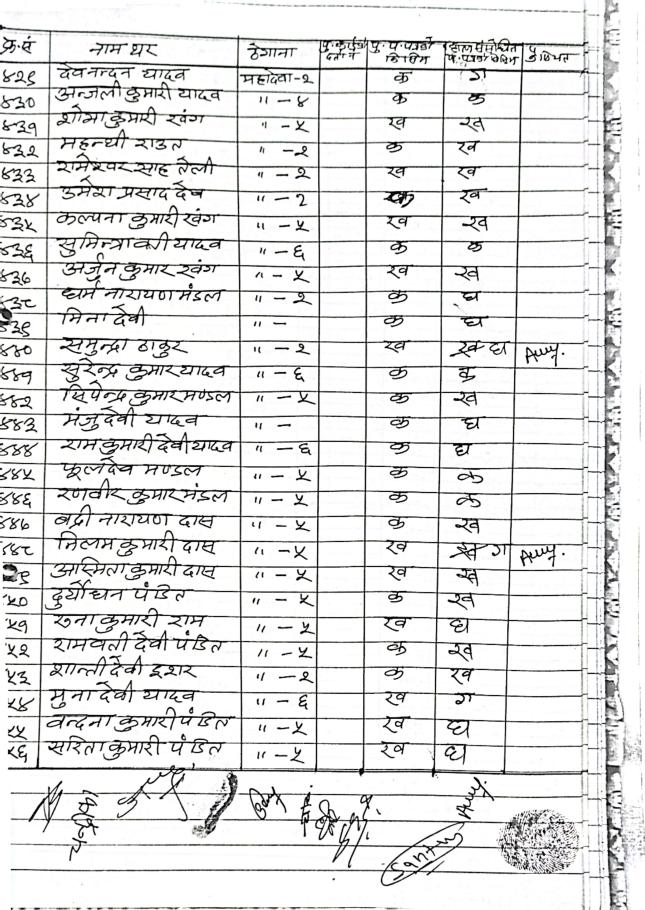 क्र.सं नाम थर ठेगाना
४२९ देवनान्दन यादव महादेवा-२ क ग
४३० अन्जली कुमारी यादव " - ४ क क
४३१ शोभा कुमारी खंग " - ५ ख ख
४३२ महन्थी राउत " - २ क ख
४३३ रामेश्वर साह तेली " - २ ख ख
४३४ उमेश प्रसाद देव " - 2 ख
४३५ कल्पना कुमारी खंग " - ५ ख ख
४३६ सुमिन्त्रावती यादव " - ६ क क
४३७ अर्जुन कुमार खंग " - ५ ख ख
४३८ धर्म नारायण मंडल " - २ क घ
३९ मिना देवी " - क घ
४४० समुन्द्रा ठाकुर " - २ ख ख घ
४४१ सुरेन्द्र कुमार यादव " - ६ क क
४४२ दिपेन्द्र कुमार मण्डल " - ५ क ख
४४३ मंजु देवी यादव " - क घ
४४४ राम कुमारी देवी यादव " - ६ क घ
४४५ फूलदेव मण्डल " - ५ क क
४४६ रणवीर कुमार मंडल " - ५ क क
४४७ बद्री नारायण दास " - ५ क ख
४४८ निलम कुमारी दास " - ५ ख ग
९ आस्मिता कुमारी दास " - ५ ख ख
५० दुर्योधन पंडित " - ५ क ख
५१ रुना कुमारी राम " - ५ ख घ
५२ रामवती देवी पंडित " - ५ क ख
५३ शान्ती देवी इशर " - २ क ख
५४ मुना देवी यादव " - ६ ख ग
५५ वन्दना कुमारी पंडित " - ५ ख घ
५६ सरिता कुमारी पंडित " - ५ ख घ